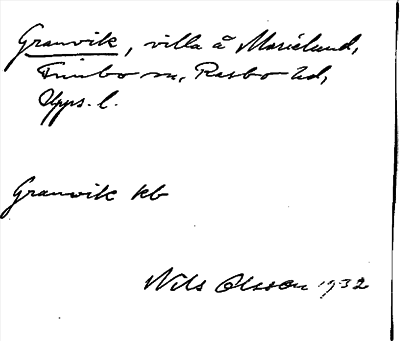 Granvik, villa å Marielund,
Funbo sn, Rasbo hd,
Upps. l.
Granvik kb
Nils Olsson 1932